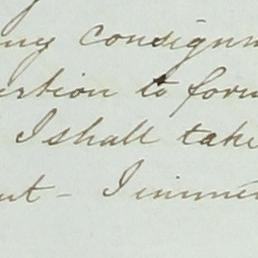 any consignm
ertion to forw
I shall take
ut - I imme